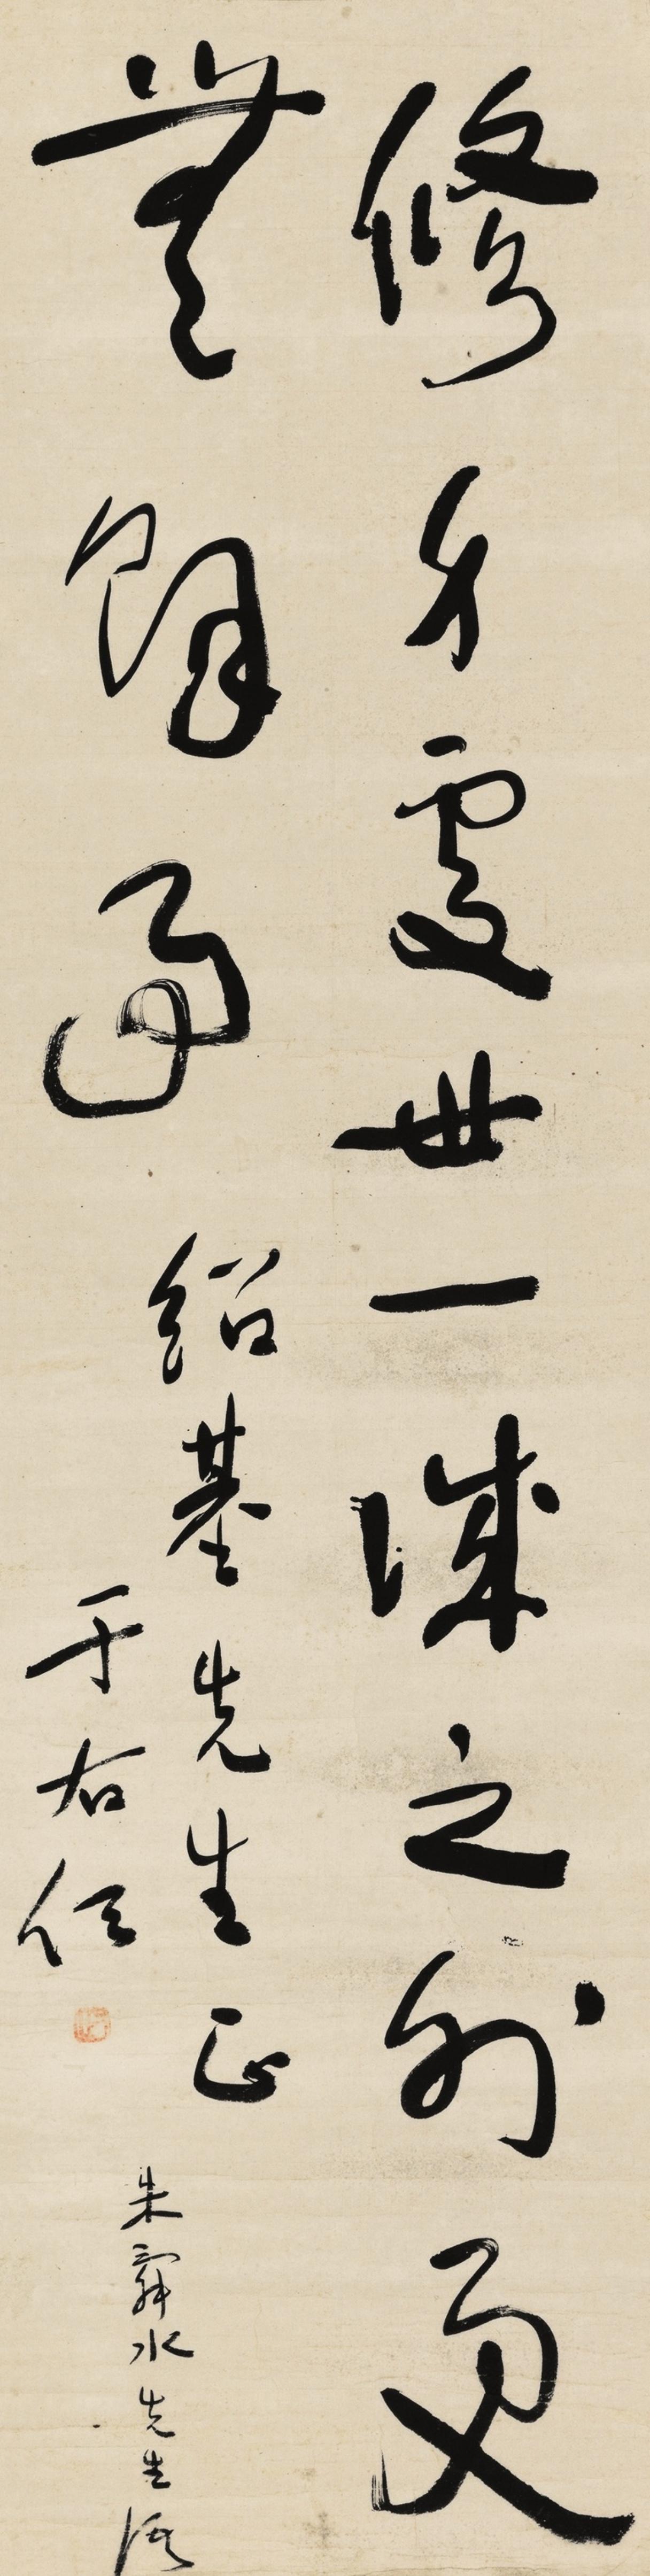 修身處世一誠之外更
無餘事
紹基先生正
于右任
朱舜水先生語